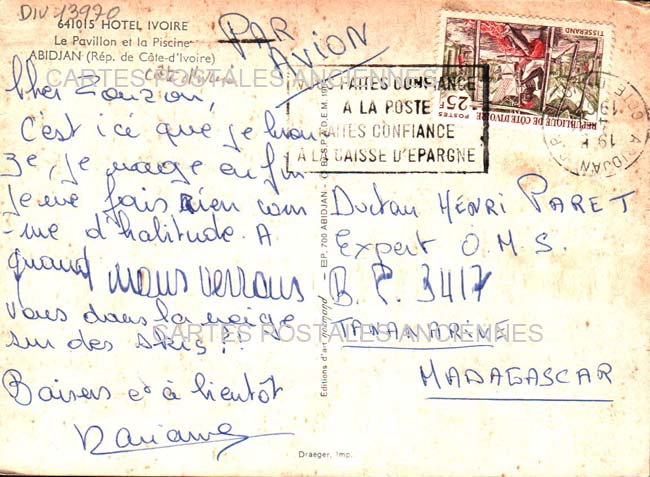 DIV-13970
641015 HOTEL IVOIRE
Le Pavillon et la Piscine
ABIDJAN (Rép. de Côte-d'Ivoire)
Côte d'Ivoire
PAR
AVION
CARTES POSTALES ANCIENNES
TISSERAND
25F
POSTES
REPUBLIQUE DE CÔTE D'IVOIRE
VOUS FAITES CONFIANCE
A LA POSTE
FAITES CONFIANCE
A LA CAISSE D'EPARGNE
ABIDJAN
Cher
C'est ici que je bron
ze, je nage enfin
je ne fais rien com
me d'habitude. A
quand nous verrons
vous dans la neige
sur des skis ?!
Baisers et à bientôt
Docteur HENRI PARET
Expert O.M.S.
B.P. 3417
TANANARIVE
MADAGASCAR
CARTES POSTALES ANCIENNES
Éditions d'art
B.P. 700 ABIDJAN
Draeger, Imp.